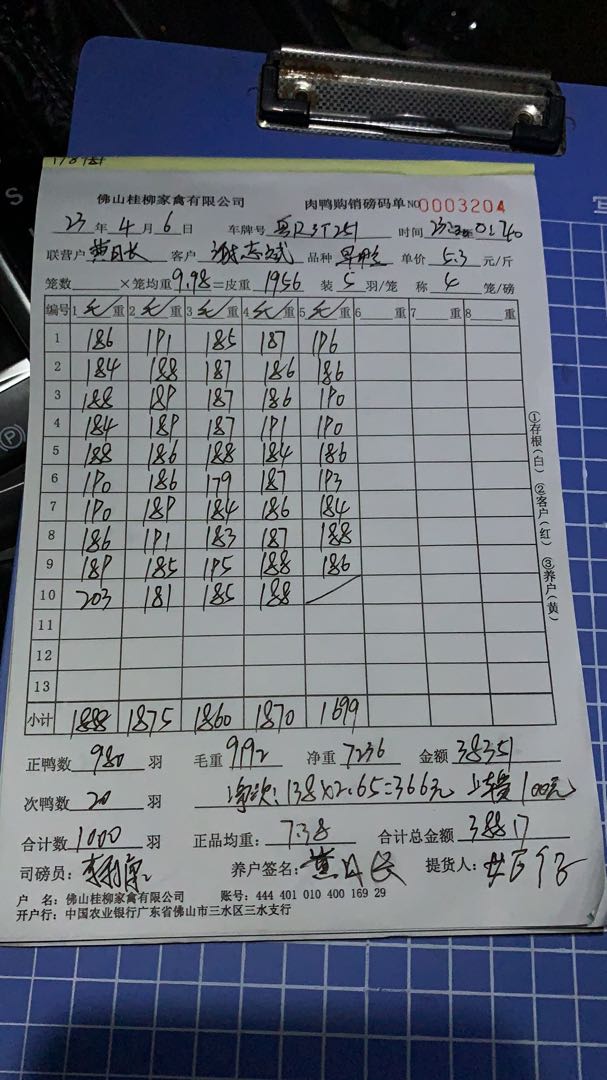 佛山桂柳家禽有限公司 肉鸭购销磅码单 NO 0003204
23 年 4 月 6 日 车牌号 粤R3T251 时间
联营户 黄日长 客户 品种 单价 5.3 元/斤
笼数 ×笼均重 9.98 =皮重 1956 装 5 羽/笼 称 4 笼/磅
编号 1 毛/重 2 毛/重 3 毛/重 4 毛/重 5 毛/重 6 重 7 重 8 重
1 186 191 185 187 196
2 184 188 187 186 186
3 188 189 187 186 190
4 184 189 187 191 190
5 188 186 188 184 186
6 190 186 179 187 193
7 190 189 184 186 184
8 186 191 183 187 188
9 189 185 195 188 186
10 203 181 185 188
11
12
13
小计 1888 1875 1860 1870 1699
正鸭数 980 羽 毛重 9192 净重 7236 金额 38351
次鸭数 20 羽 净次:138×2.65=366元 上转费100元
合计数 1000 羽 正品均重: 7.38 合计总金额 38817
司磅员: 养户签名: 黄日长 提货人:
户 名: 佛山桂柳家禽有限公司 账号: 444 401 010 400 169 29
开户行: 中国农业银行广东省佛山市三水区三水支行
①存根(白) ②客户(红) ③养户(黄)